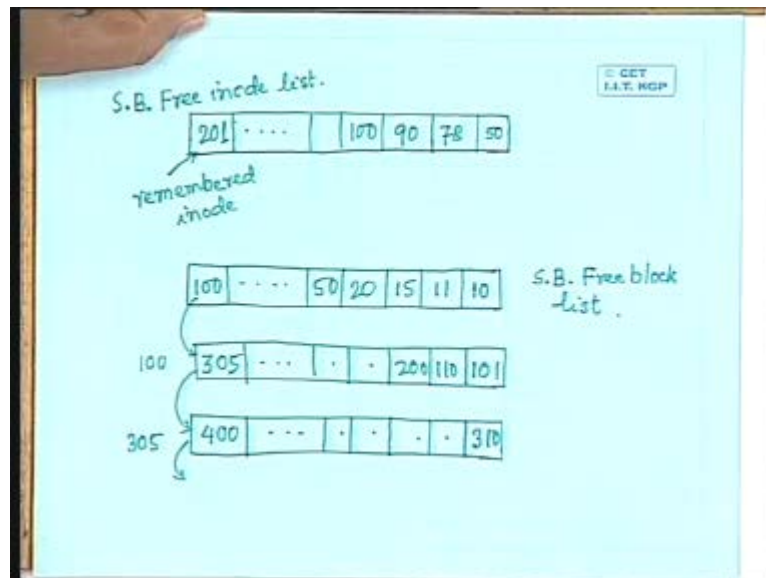 © CET
I.I.T. KGP
S.B. Free inode list.
201 .... 100 90 78 50
remembered
inode
100 .... 50 20 15 11 10
S.B. Free block
list.
100 305 ... . . 200 110 101
305 400 ... . . . . 310